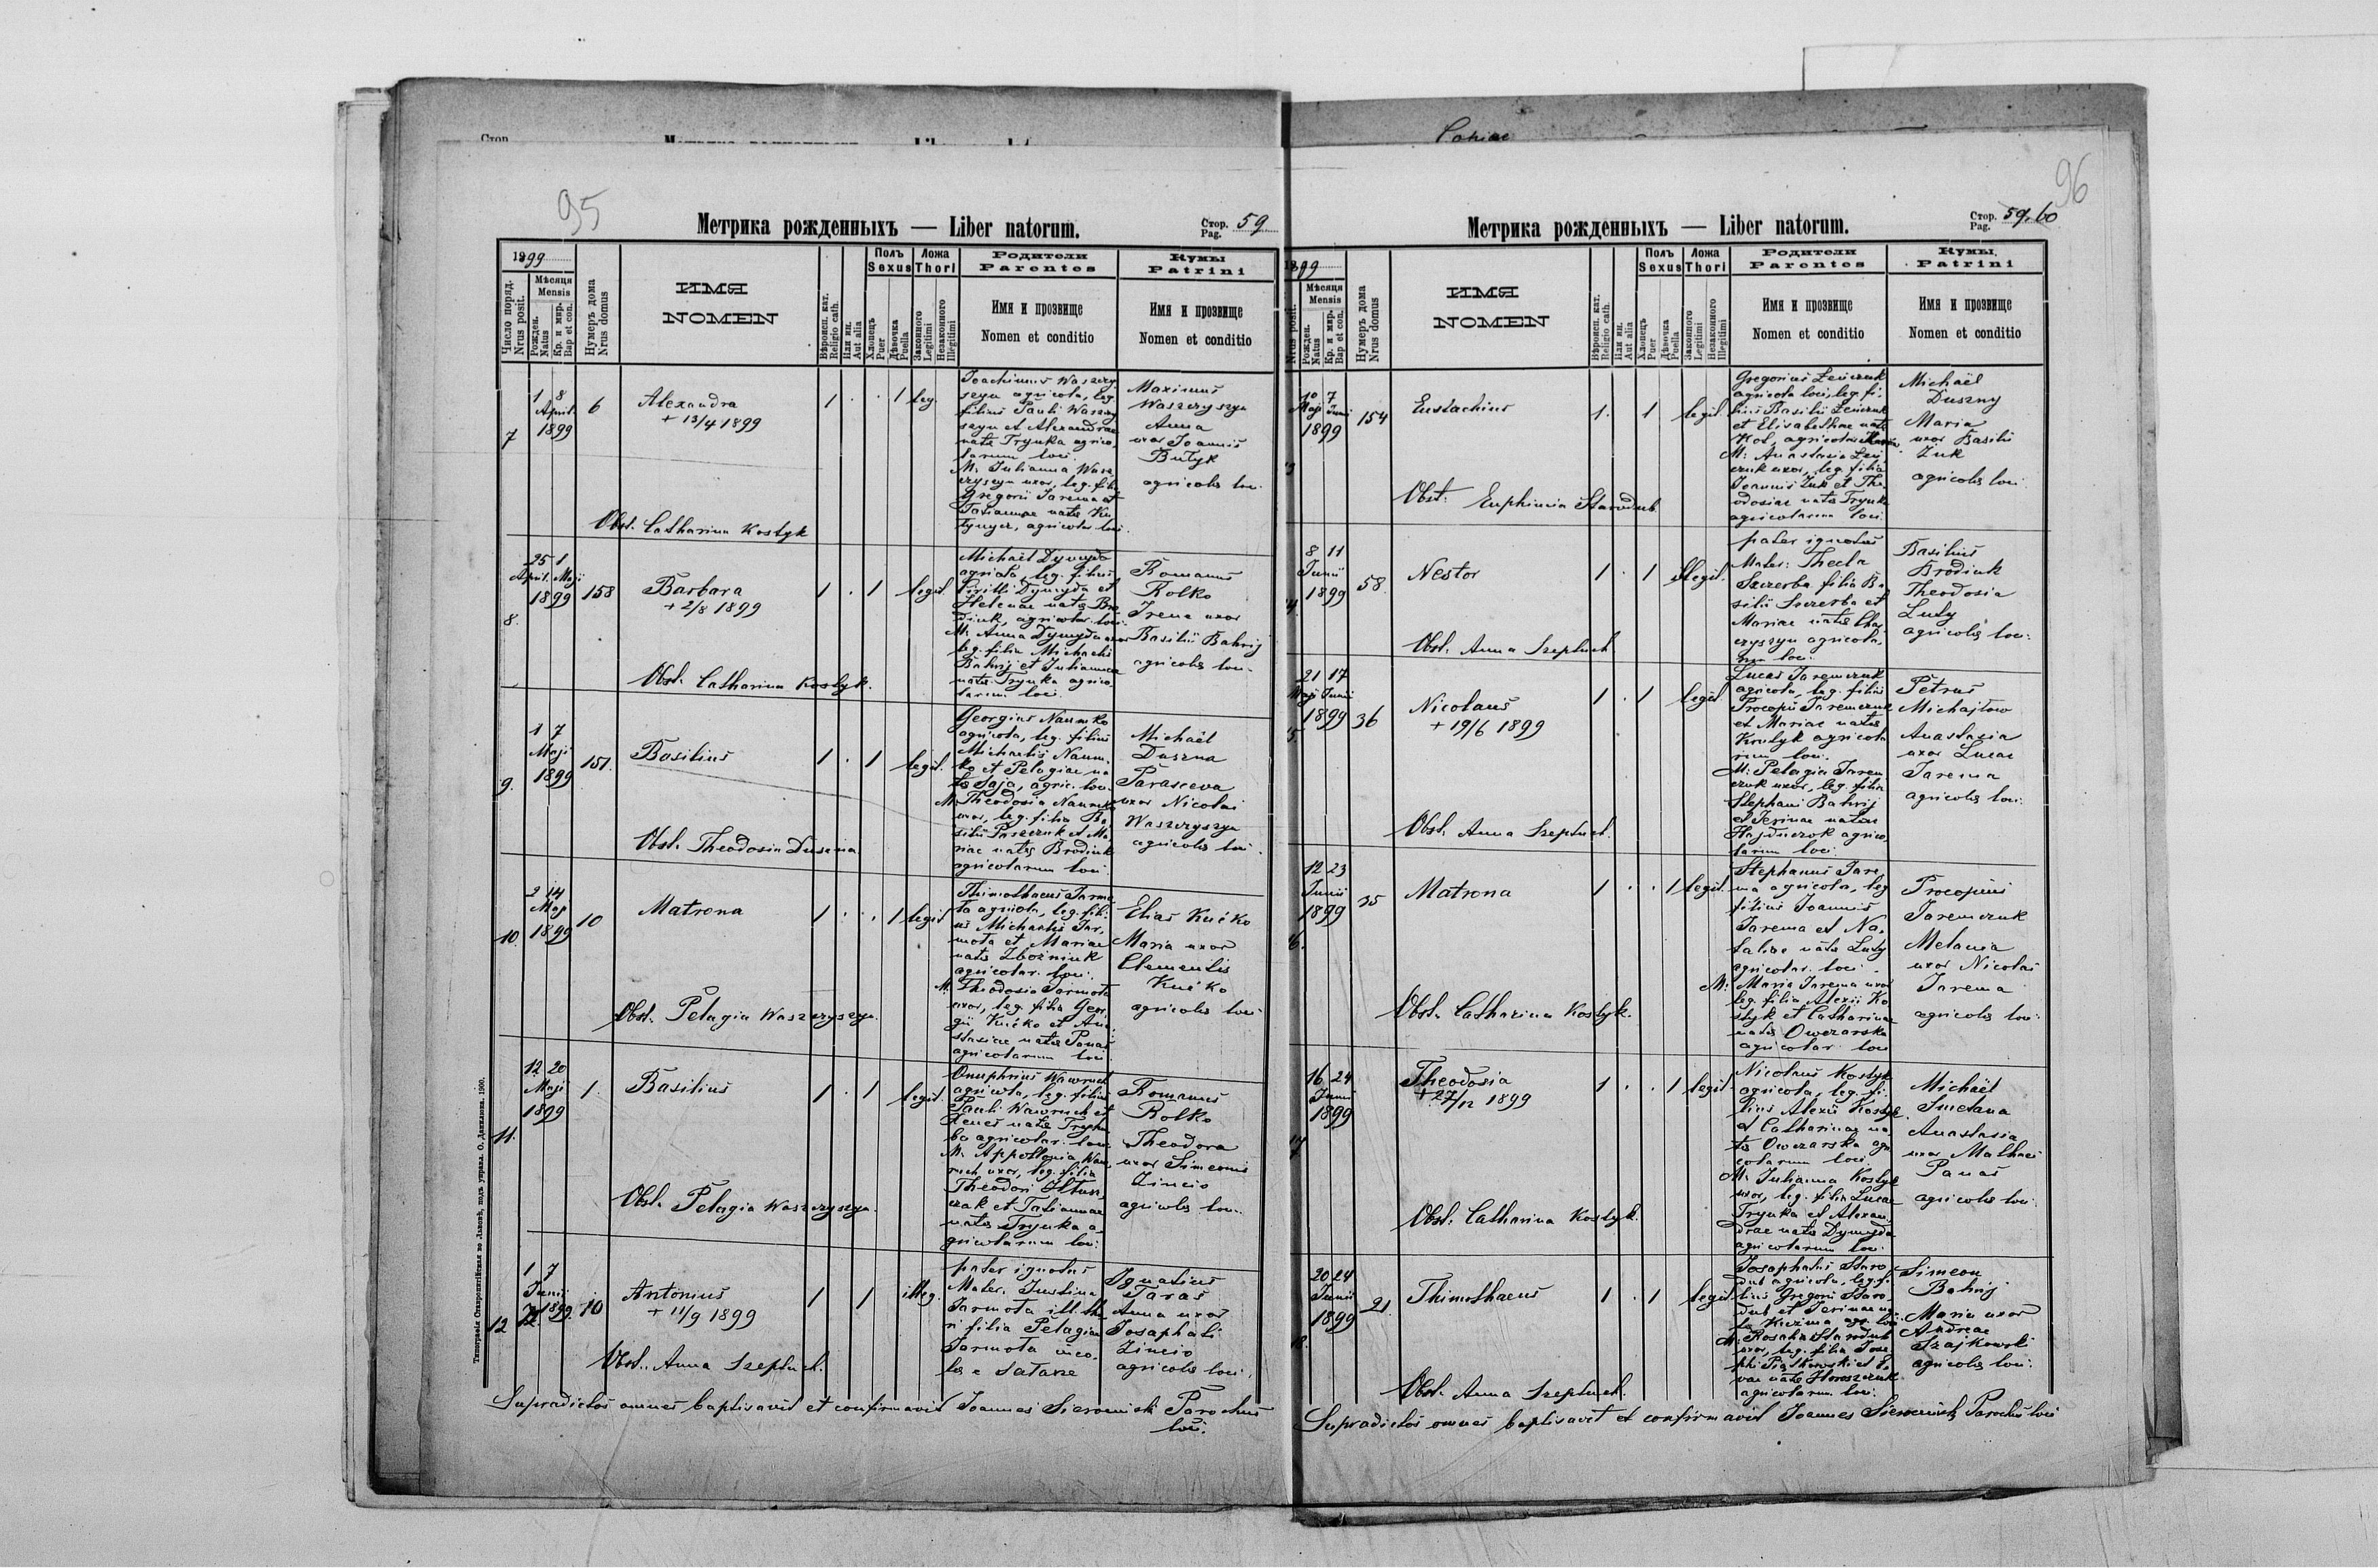 95
Метрика рожденныхъ — Liber natorum.
Стор. Pag. 59
1899
Число поряд. Nrus posit.
Мѣсяця Mensis
Рожден. Natus
Кр. и мир. Bap et con.
Нумеръ дома Nrus domus
ИМЯ
NOMEN
Вѣроисп. кат. Religio cath.
Или ин. Aut alia
Полъ Sexus
Хлопецъ Puer
Дѣвочка Puella
Ложа Thori
Законного Legitimi
Незаконного Illegitimi
Родители
Parentes
Имя и прозвище
Nomen et conditio
Кумы
Patrini
Имя и прозвище
Nomen et conditio
7
1 8
April.
1899
6
Alexandra
+ 13/4 1899
1 . . 1 leg.
Joachimus Waszczy
szyn agricola, leg.
filius Pauli Waszczy
szyn et Alexandrae
natae Trynka agrico
larum loci.
M. Julianna Wasz
czyszyn uxor, leg. filia
Gregorii Jarema et
agricolar. loci.
Maximus
Waszczyszyn
Anna
uxor Joannis
Butyk
agricolae loci.
Obst. Catharina Kostyk
8.
25 1
April. Maji
1899
158
Barbara
+ 2/8 1899
1 . 1 legit.
Michaël Dymyda
agricola, leg. filius
Cirilli Dymyda et
Helenae natae Bro
diuk, agricolar. loci.
M. Anna Dymyda uxor
leg. filia Michaelis
Bahrij et Juliannae
natae Trynka agrico
larum loci.
Romanus
Rolko
Irena uxor
Basilii Bahrij
agricolae loci.
Obst. Catharina Kostyk.
9.
1 7
Maji
1899
151.
Basilius
1 . 1 legit.
Georgius Naumko
agricola, leg. filius
Michaelis Naum
ko et Pelagiae na
tae Saja, agric. loci.
M. Theodosia Naumko
uxor, leg. filia Ba
silii Paszczuk et Ma
riae natae Brodiuk
agricolarum loci.
Michaël
Duszna
Parasceva
uxor Nicolai
Waszczyszyn
agricolae loci.
Obst. Theodosia Duszna
10.
2 14
Maji
1899
10
Matrona
1 . . 1 legit
Thimothaeus Jarmo
ta agricola, leg. fili
us Michaelis Jar
mota et Mariae
natae Zbożniuk
agricolar. loci.
M. Theodosia Jarmota
uxor, leg. filia Geor
gii Kućko et Ana
stasiae natae Panas
agricolarum loci
Elias Kućko
Maria uxor
Clementis
Kućko
agricolae loci.
Obst. Pelagia Waszczyszyn.
11.
12 20
Maji
1899
1.
Basilius
1 . 1 legit.
Onuphrius Wawruch
agricola, leg. filius
Pauli Wawruch et
agricolar. loci
M. Appollonia Waw
ruch uxor, leg. filia
Theodori
et Tatiannae
natae Trynka a
gricolarum loci.
Romanus
Rolko
Theodora
uxor Simeonis
Zincio
agricolae loci.
Obst. Pelagia Waszczyszyn.
12
1 7
Junii
1899.
10
Antonius
+ 11/9 1899
1 1 illeg.
pater ignotus
Mater. Justina
Jarmota ill. tho
ri filia Pelagiae
Jarmota inco
la e Satanze
Ignatius
Taras
Anna uxor
Josaphati
Zincio
agricolae loci.
Obst. Anna Szeptuch.
Supradictos omnes baptisavit et confirmavit Joannes Sierociński Parochus
loci.
Copiae
96
Метрика рожденныхъ — Liber natorum.
Стор. Pag. 59, 60
1899
Nrus posit.
Мѣсяця Mensis
Рожден. Natus
Кр. и мир. Bap et con.
Нумеръ дома Nrus domus
ИМЯ
NOMEN
Вѣроисп. кат. Religio cath.
Или ин. Aut alia
Полъ Sexus
Хлопецъ Puer
Дѣвочка Puella
Ложа Thori
Законного Legitimi
Незаконного Illegitimi
Родители
Parentes
Имя и прозвище
Nomen et conditio
Кумы,
Patrini
Имя и прозвище
Nomen et conditio
10 7
Maji Junii
1899
154
Eustachius
1. 1 legit.
Gregorius
agricola loci, leg. fi
lius Basilii
et Elisabethae natae
Kot, agricolar.
M: Anastasia
uxor, leg. filia
Joannis Zuk et The
odosiae natae Trynka
agricolarum loci.
Michaël
Duszny
Maria
uxor Basilii
Zuk
agricolae loci.
Obst. Euphimia Starodub
8 11
Junii
1899
58.
Nestor
1 . 1 illegit.
pater ignotus
Mater: Thecla
Szczerba filia Ba
silii Szczerba et
Mariae natae
agricola
rum loci.
Basilius
Brodiuk
Theodosia
Luty
agricolae loci.
Obst. Anna Szeptuch
21 17
Maji Junii
1899
36
Nicolaus
+ 19/6 1899
1 . 1 legit
Lucas Jaremczuk
agricola, leg. filius
Procopii Jaremczuk
et Mariae natae
agricola
rum loci.
M: Pelagia Jarem
czuk uxor, leg. filia
Stephani Bahrij
et Jerinae natae
Hajduczok agrico
larum loci.
Petrus
Michajlow
Anastasia
uxor Lucae
Jarema
agricolae loci.
Obst. Anna Szeptuch.
12 23
Junii
1899
35
Matrona
1 . . 1 legit.
Stephanus Jare
ma agricola, leg
filius Joannis
Jarema et Na
taliae natae Luty
agricolar. loci.
M: Maria Jarema uxor
leg. filia Alexii Ko
styk et Catharinae
natae Owczarska
agricolar. loci
Procopius
Jaremczuk
Melania
uxor Nicolai
Jarema
agricolae loci.
Obst. Catharina Kostyk.
16 24
Junii
1899
Theodosia
+ 27/12 1899
1 . . 1 legit.
Nicolaus Kostyk
agricola, leg. fi
lius Alexii Kostyk
et Catharinae na
tae Owczarska agri
colarum loci.
M. Julianna Kostyk
uxor, leg. filia Lucae
Trynka et Alexan
drae natae Dymyda
agricolarum loci.
Michaël
Smetana
Anastasia
uxor Mathaei
Panas
agricolae loci.
Obst. Catharina Kostyk.
20 24
Junii
1899
21.
Thimothaeus
1 . 1 legit
Josaphatus Staro
dub agricola, leg. fi
lius Gregorii Staro
dub et Jerinae na
tae Kuzma agr. loci
M: Rosalia Starodub
uxor, leg. filia Jose
phi Piątkowski et E
vae natae Horoszczuk
agricolarum loci.
Simeon
Bahrij
Maria uxor
Andreae
Szajkowski
agricolae loci.
Obst. Anna Szeptuch.
Supradictos omnes baptisavit et confirmavit Joannes Sierociński Parochus loci
Типографія Ставропигійская во Львовѣ, подъ управл. О. Данилюка. 1900.